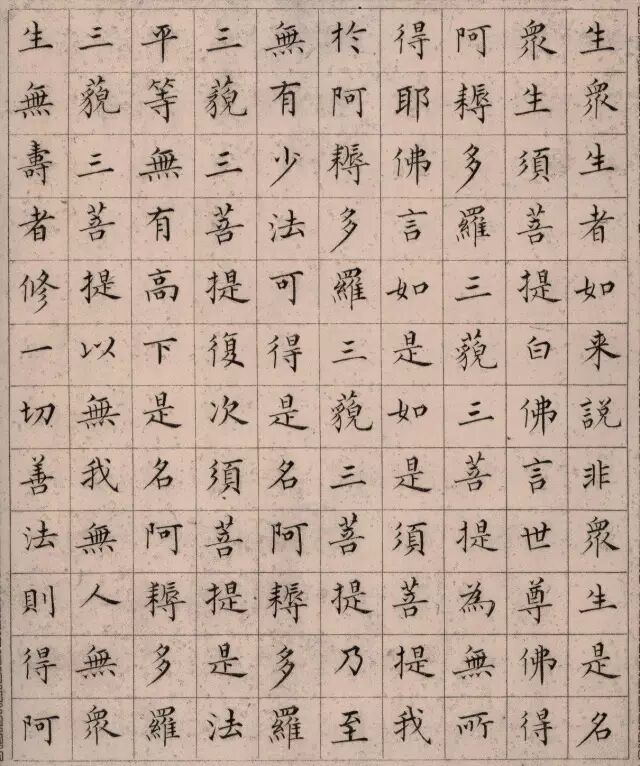 生衆生者如来說非衆生是名
衆生須菩提白佛言世尊佛得
阿耨多羅三藐三菩提為無所
得耶佛言如是如是須菩提我
於阿耨多羅三藐三菩提乃至
無有少法可得是名阿耨多羅
三藐三菩提復次須菩提是法
平等無有高下是名阿耨多羅
三藐三菩提以無我無人無衆
生無壽者修一切善法則得阿